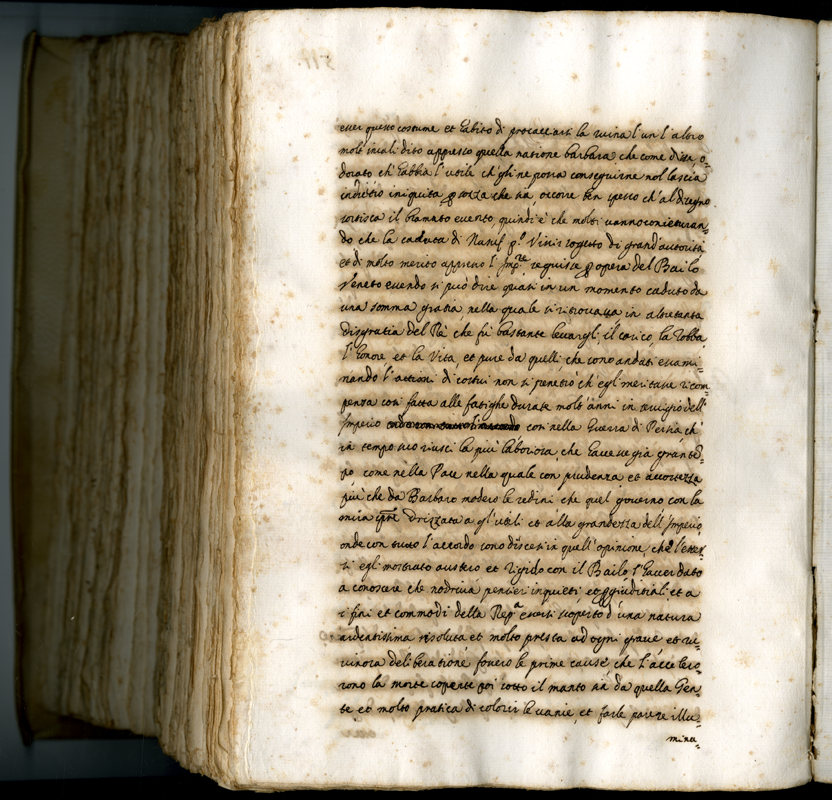 esser questo costume et habito di procacciarsi la ruina l'un l'altro
molt' invalidito appresso quella natione barbara che come disia, o-
dorato ch'habbia l'utile ch'gli ne possa conseguirne nol lascia
indietro iniquità ꝑ sozza che sia, occorre ben spesso ch'al disegno
sortisca il bramato evento, quindi è che molti vanno conietturan-
do che la caduta di Nasuf p.º Visir sogetto di grand'autorità
et di molto merito appresso l'Imp.re seguisse ꝑ opera del Bailo
Veneto essendo si può dire quasi in un momento caduto da
una somma gratia, nella quale si ritrovava in altretanta
disgratia del Rè che fù bastante levargli il carico, la robba,
l'honore et la Vita, et pure da quelli che sono andati esami-
nando l'attioni di costui non si penetrò ch'egli meritasse ricom-
pensa così fatta alle fatighe durate molt'anni in servigio dell'
Imperio così nella Guerra di Persia ch'
in tempo suo riuscì la più laboriosa, che havesse già gran te-
po come nella Pace nella quale con prudenza et accortezza
più che da Barbaro moderò le redini che quel governo con la
mira drizzata a gl'utili et alla grandezza dell'Imperio,
onde con tutto l'accordo sono discesi in quell'opinione, che l'esser-
si egli mostrato austero et rigido con il Bailo, l'haver dato
a conoscere che nodriva pensieri inquieti et ꝑgiuditiali et a
i fini et commodi della Rep.ca essersi scoperto d'una natura
ardentissima risoluta et molto presta ad ogni grave et ru-
vinosa deliberatione fossero le prime cause che l'accelero-
rono la morte coperte poi sotto il manto da quella Gen-
te et molto pratica di colorir le vanie, et farle parere illu-
mina-